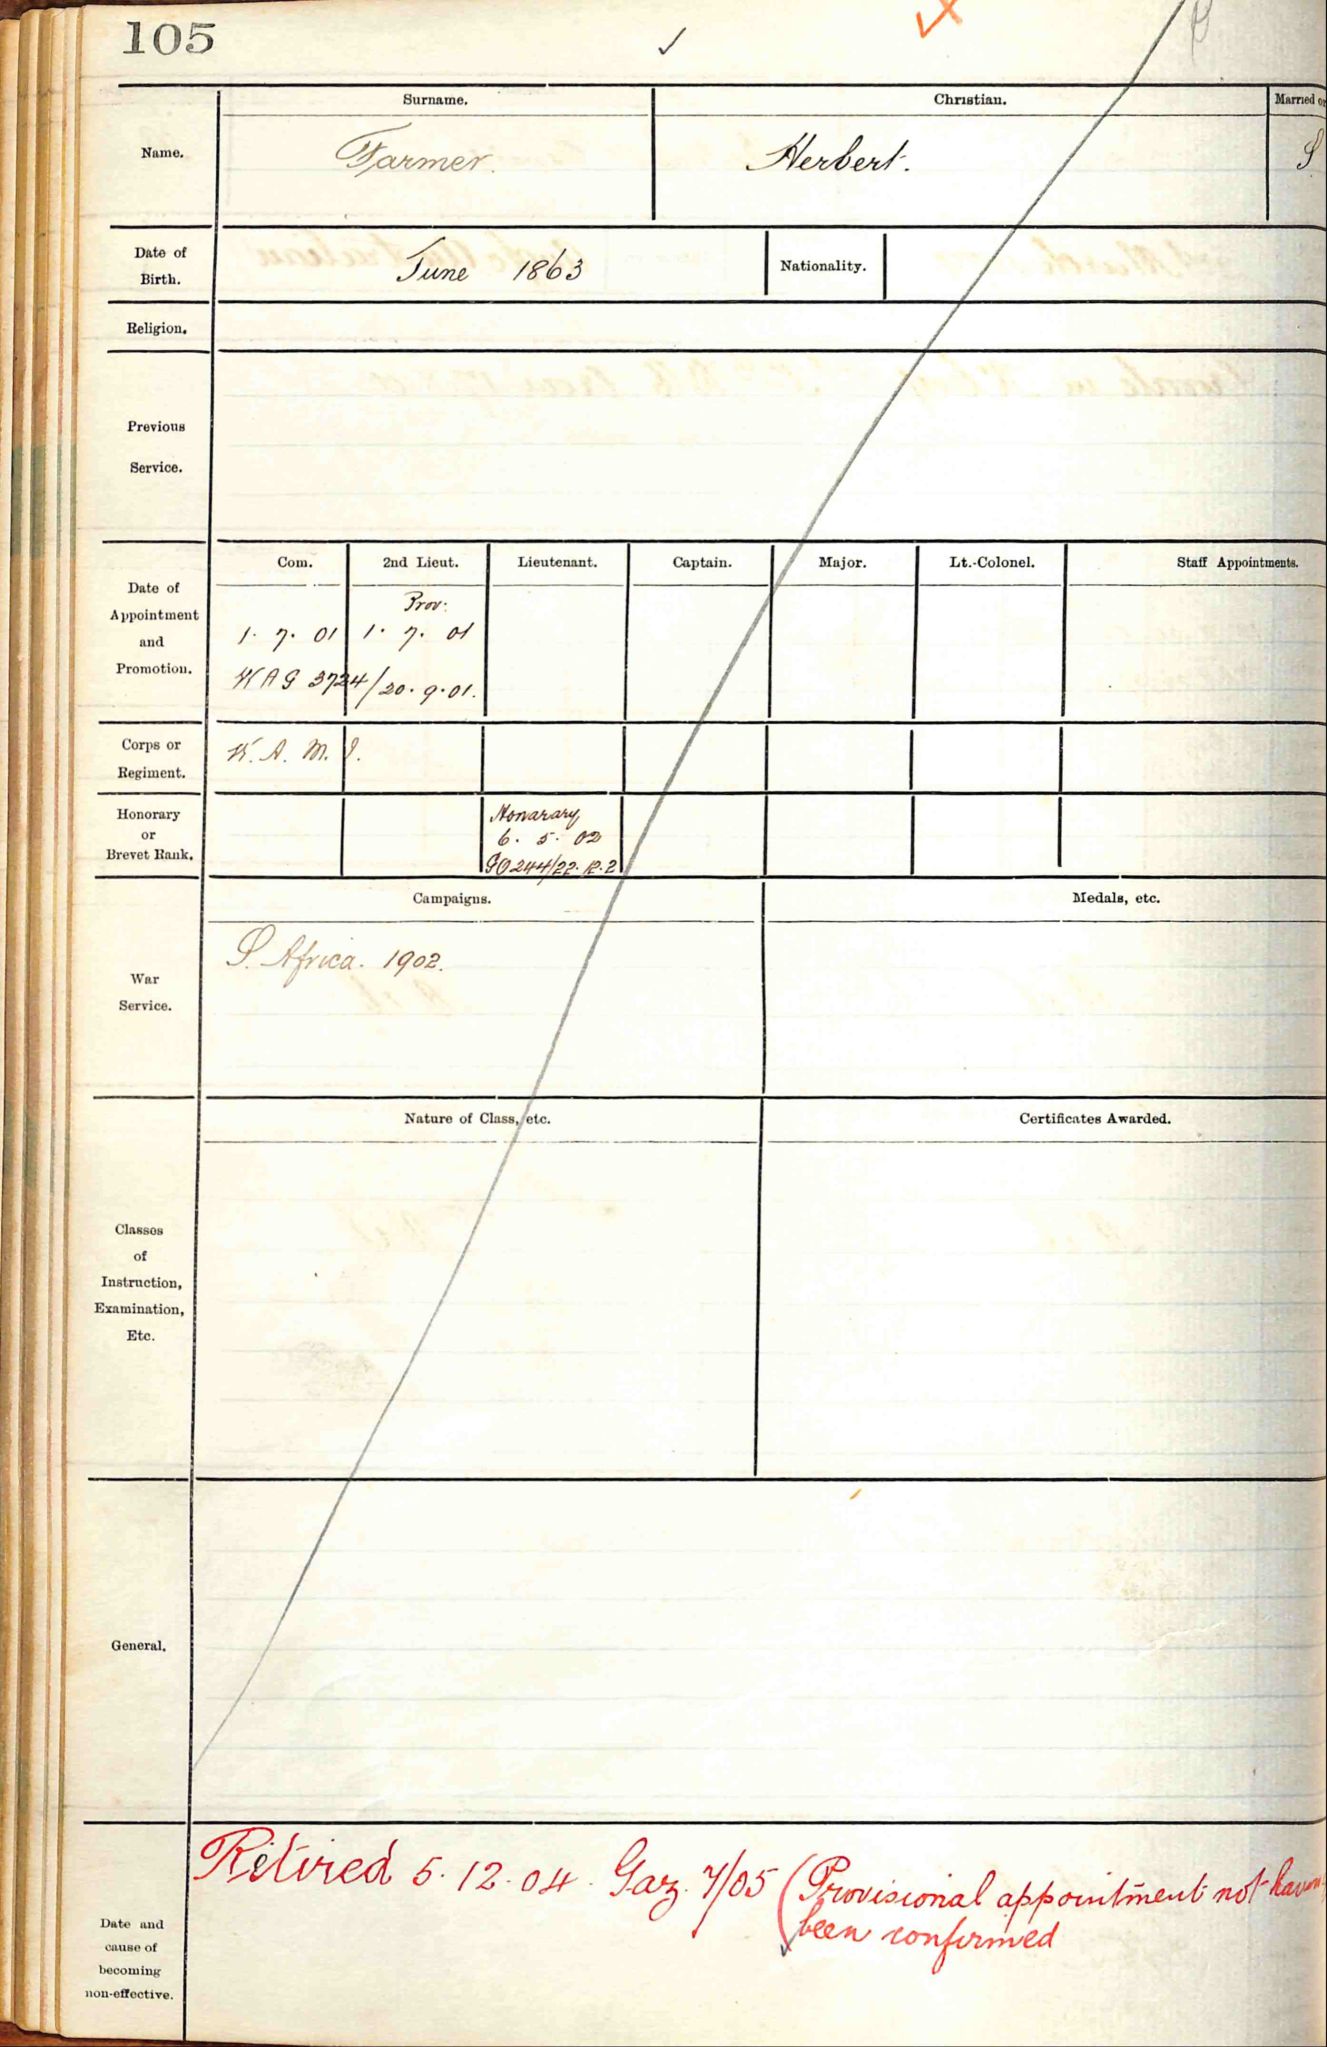 105
Surname.
Christian.
Married or
Name.
Farmer.
Herbert.
S
Date of
Birth.
June 1863
Nationality.
Religion.
Previous
Service.
Com.
2nd Lieut.
Lieutenant.
Captain.
Major.
Lt.-Colonel.
Staff Appointments.
Date of
Appointment
and
Promotion.
Prov:
1. 7. 01
1. 7. 01
WAG 3724/20.9.01.
Corps or
Regiment.
W. A. M. I.
Honorary
or
Brevet Rank.
Honarary
6. 5. 02
GO244/22.12.2
Campaigns.
Medals, etc.
War
Service.
S. Africa. 1902.
Nature of Class, etc.
Certificates Awarded.
Classes
of
Instruction,
Examination,
Etc.
General.
Date and
cause of
becoming
non-effective.
Retired 5.12.04. Gaz. 7/05 (Provisional appointment not
been confirmed